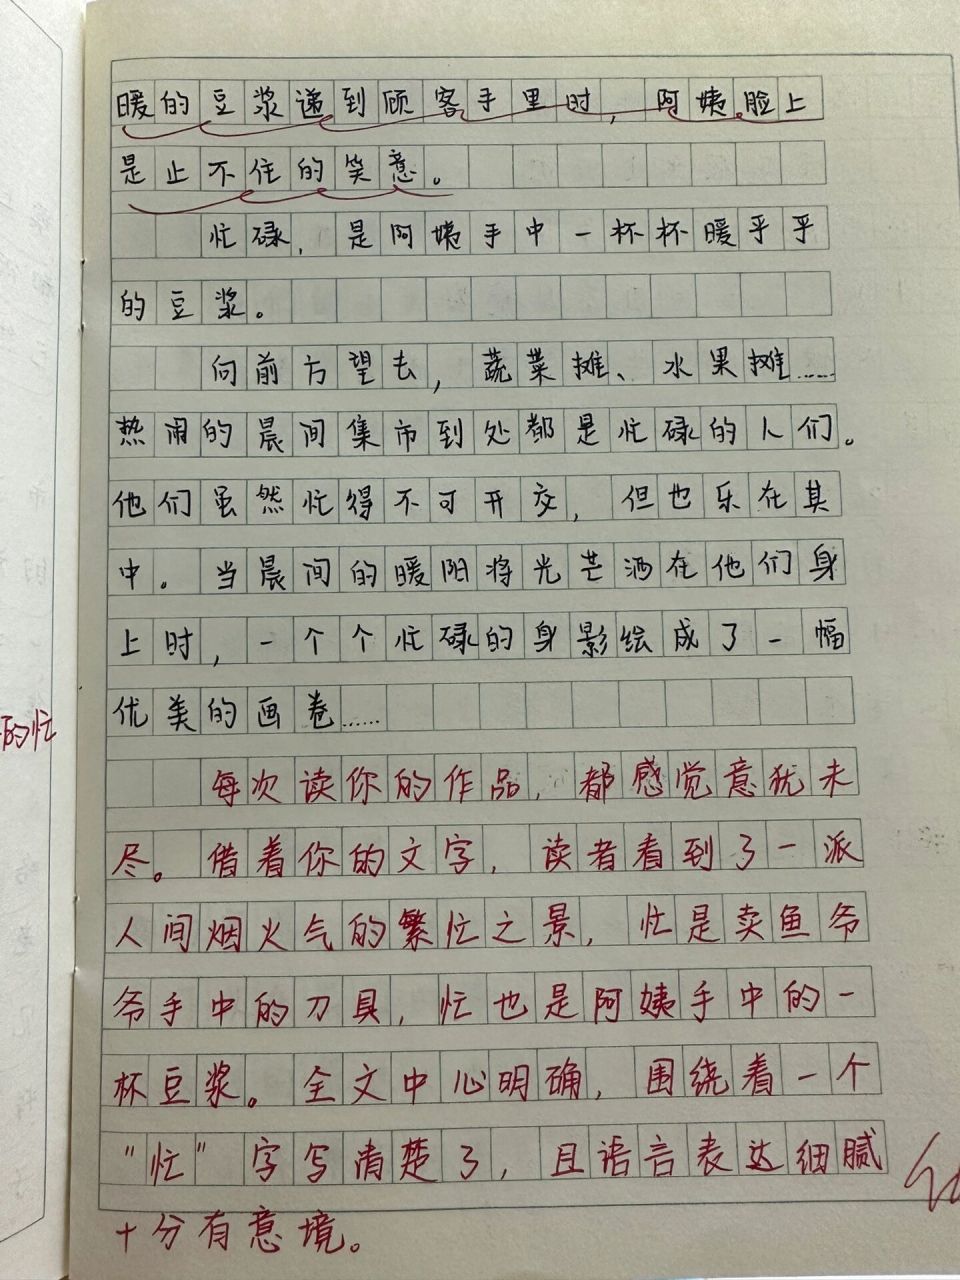 暖的豆浆递到顾客手里时，阿姨脸上
是止不住的笑意。
忙碌，是阿姨手中一杯杯暖乎乎
的豆浆。
向前方望去，蔬菜摊、水果摊……
热闹的晨间集市到处都是忙碌的人们。
他们虽然忙得不可开交，但也乐在其
中。当晨间的暖阳将光芒洒在他们身
上时，一个个忙碌的身影绘成了一幅
优美的画卷……
的忙
每次读你的作品，都感觉意犹未
尽。借着你的文字，读者看到了一派
人间烟火气的繁忙之景，忙是卖鱼爷
爷手中的刀具，忙也是阿姨手中的一
杯豆浆。全文中心明确，围绕着一个
“忙”字写清楚了，且语言表达细腻
十分有意境。